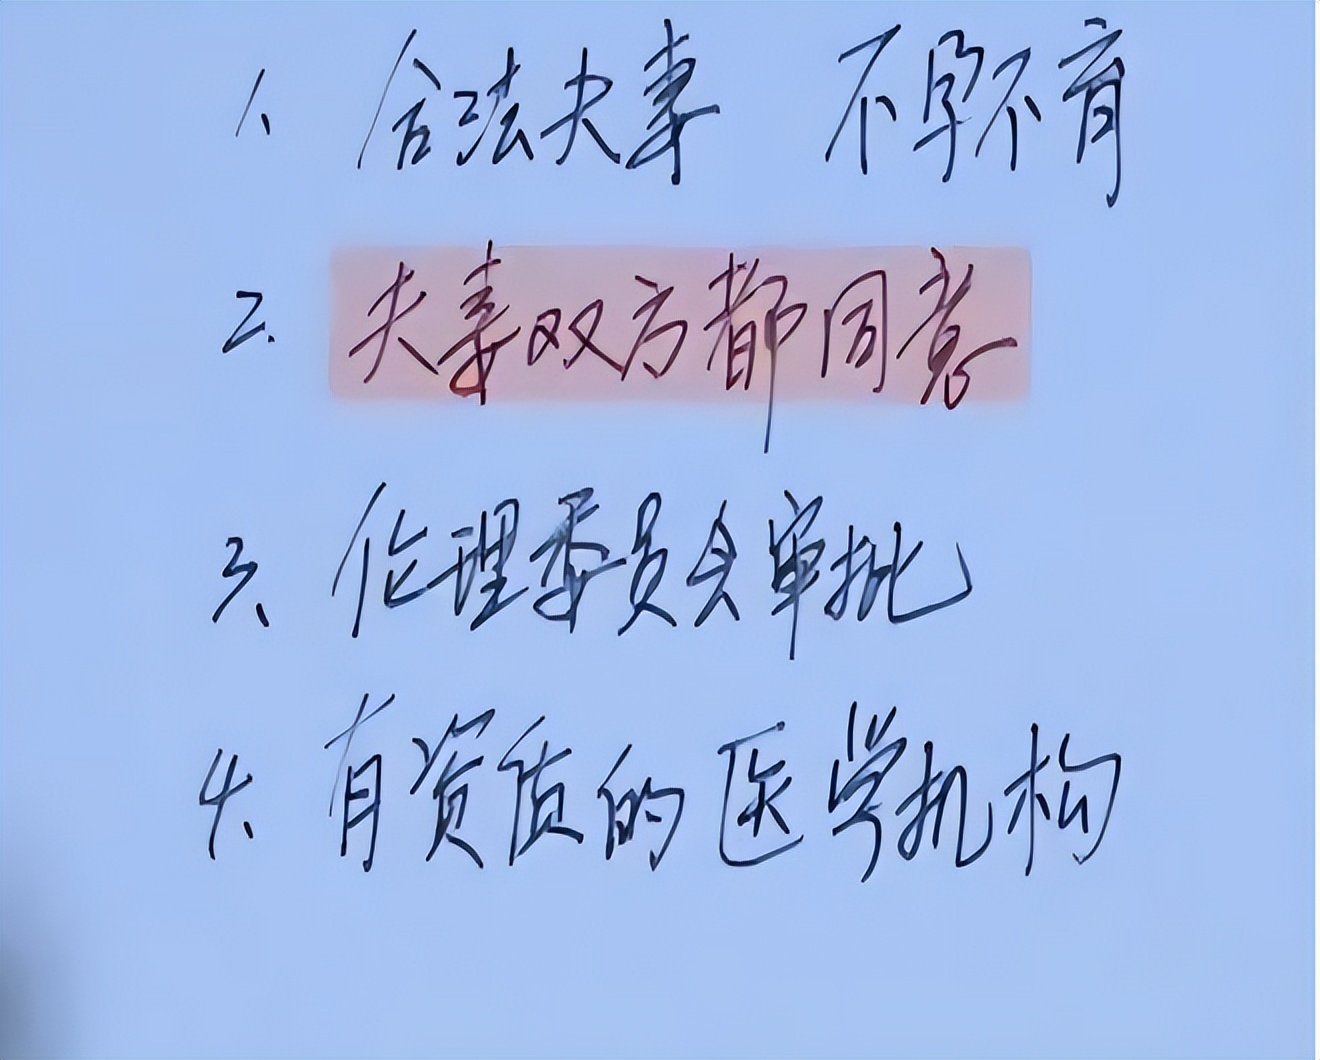 1、合法夫妻 不孕不育
2、夫妻双方都同意
3、伦理委员会审批
4、有资质的医学机构